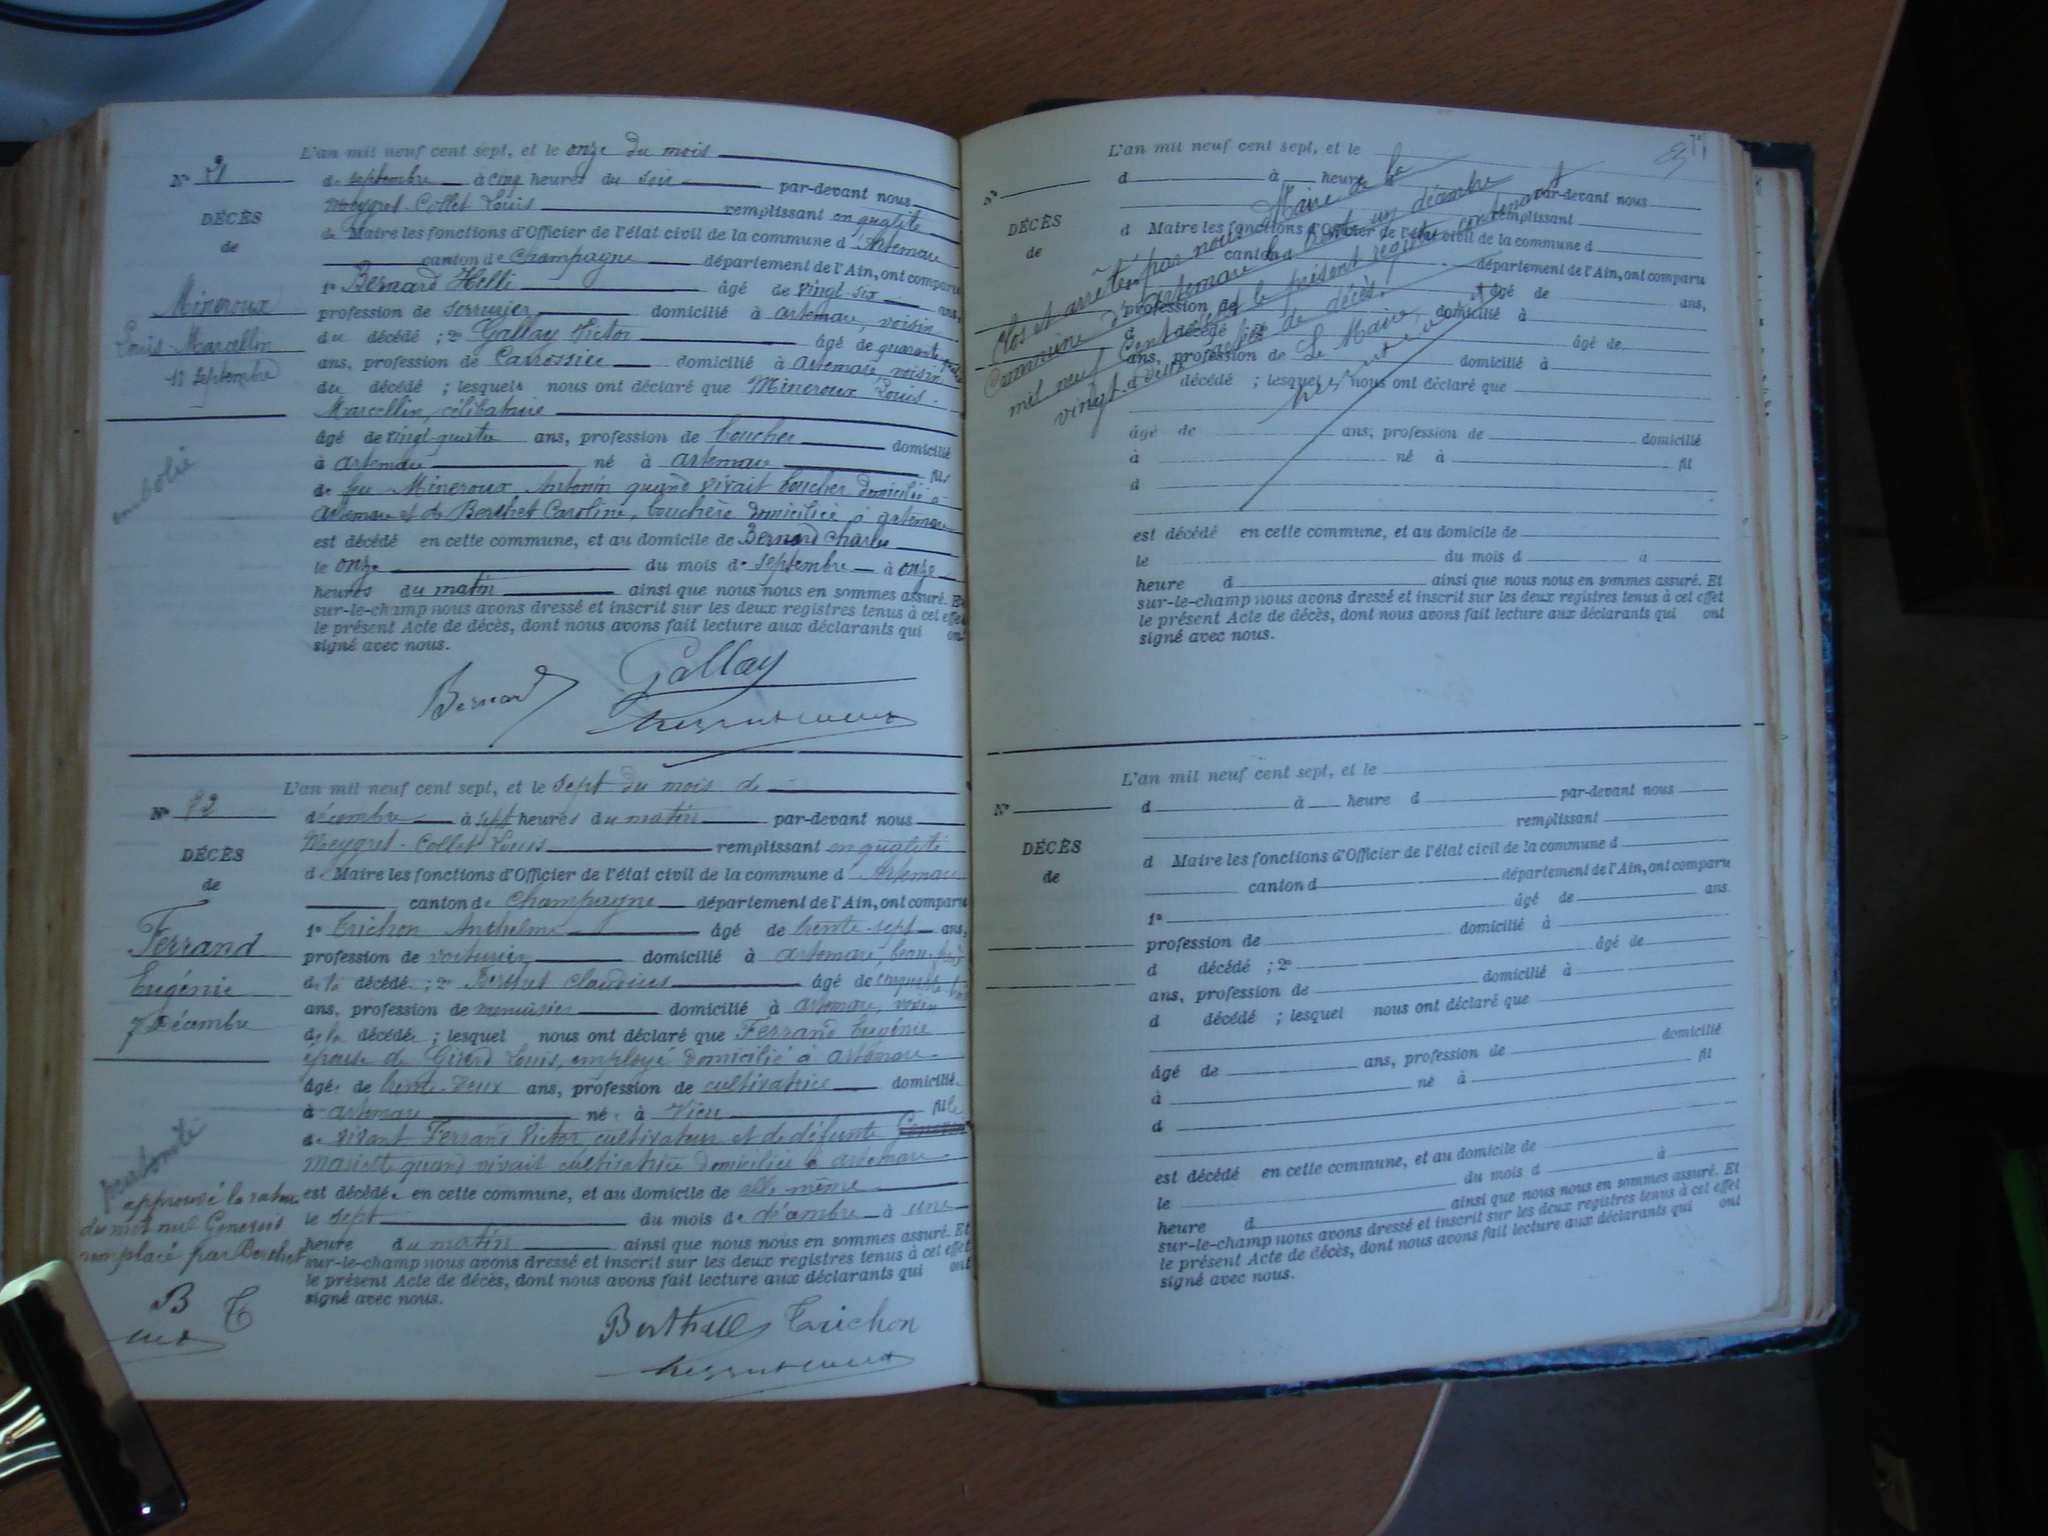 L'an mil neuf cent sept, et le onze du mois
de septembre à cinq heures du soir par-devant nous
Meygret-Collet Louis remplissant en qualité
de Maire les fonctions d'Officier de l'état civil de la commune d'Artemare
canton de Champagne département de l'Ain, ont comparu
1º Bernard âgé de vingt-six ans,
profession de serrurier domicilié à Artemare, voisin
du décédé ; 2º Gallay Victor âgé de quarante
ans, profession de Carossier domicilié à Artemare, voisin
du décédé ; lesquels nous ont déclaré que Mineroux Louis-
Marcellin, célibataire
âgé de vingt-quatre ans, profession de boucher domicilié
à Artemare né à Artemare fils
de feu Mineroux Antonin quand vivait boucher domicilié à
Artemare et de Berthet Caroline, bouchère domiciliée à Artemare
est décédé en cette commune, et au domicile de Bernard Charles
le onze du mois de septembre à onze
heures du matin ainsi que nous nous en sommes assuré. Et
sur-le-champ nous avons dressé et inscrit sur les deux registres tenus à cet effet
le présent Acte de décès, dont nous avons fait lecture aux déclarants qui ont
signé avec nous.
Nº
DÉCÈS
de
Mineroux
Louis-Marcellin
11 septembre
embolie
Bernard Gallay
L'an mil neuf cent sept, et le sept du mois de
décembre à sept heures du matin par-devant nous
Meygret-Collet Louis remplissant en qualité
de Maire les fonctions d'Officier de l'état civil de la commune d'Artemare
canton de Champagne département de l'Ain, ont comparu
1º Trichon Anthelme âgé de trente-sept ans,
profession de voiturier domicilié à Artemare, beau-frère
de la décédée ; 2º Berthet Claudius âgé de cinquante
ans, profession de menuisier domicilié à Artemare, voisin
de la décédée ; lesquel nous ont déclaré que Ferrand Eugénie
épouse de Girard Louis, employé domicilié à Artemare
âgée de trente-deux ans, profession de cultivatrice domicilié
à Artemare née à Vieu fille
de vivant Ferrand Victor cultivateur et de défunte
Mariette quand vivait cultivatrice domiciliée à Artemare
est décédée en cette commune, et au domicile de elle-même
le sept du mois de décembre à une
heure du matin ainsi que nous nous en sommes assuré. Et
sur-le-champ nous avons dressé et inscrit sur les deux registres tenus à cet effet
le présent Acte de décès, dont nous avons fait lecture aux déclarants qui ont
signé avec nous.
Nº 12
DÉCÈS
de
Ferrand
Eugénie
7 Décembre
approuvé la rature
du mot nul Generois
remplacé par Berthet
B T
Trichon
L'an mil neuf cent sept, et le
Nº d à heure d par-devant nous
remplissant
DÉCÈS
de
d Maire les fonctions d'Officier de l'état civil de la commune d
canton d département de l'Ain, ont comparu
âgé de ans,
profession de domicilié à
d décédé ; 2º âgé de
ans, profession de domicilié à
d décédé ; lesquels nous ont déclaré que
âgé de ans, profession de domicilié
à né à fil
d
est décédé en cette commune, et au domicile de
le du mois d à
heure d ainsi que nous nous en sommes assuré. Et
sur-le-champ nous avons dressé et inscrit sur les deux registres tenus à cet effet
le présent Acte de décès, dont nous avons fait lecture aux déclarants qui ont
signé avec nous.
Clos et arrêté par nous Maire de la
Commune d'Artemare le trente un décembre
mil neuf cent sept le présent registre contenant
vingt-deux actes de décès.
Le Maire,
L'an mil neuf cent sept, et le
Nº d à heure d par-devant nous
remplissant
DÉCÈS
de
d Maire les fonctions d'Officier de l'état civil de la commune d
canton d département de l'Ain, ont comparu
1º âgé de ans
profession de domicilié à
d décédé ; 2º âgé de
ans, profession de domicilié à
d décédé ; lesquel nous ont déclaré que
âgé de ans, profession de domicilié
à né à fil
d
est décédé en cette commune, et au domicile de
le du mois d à
heure d ainsi que nous nous en sommes assuré. Et
sur-le-champ nous avons dressé et inscrit sur les deux registres tenus à cet effet
le présent Acte de décès, dont nous avons fait lecture aux déclarants qui ont
signé avec nous.